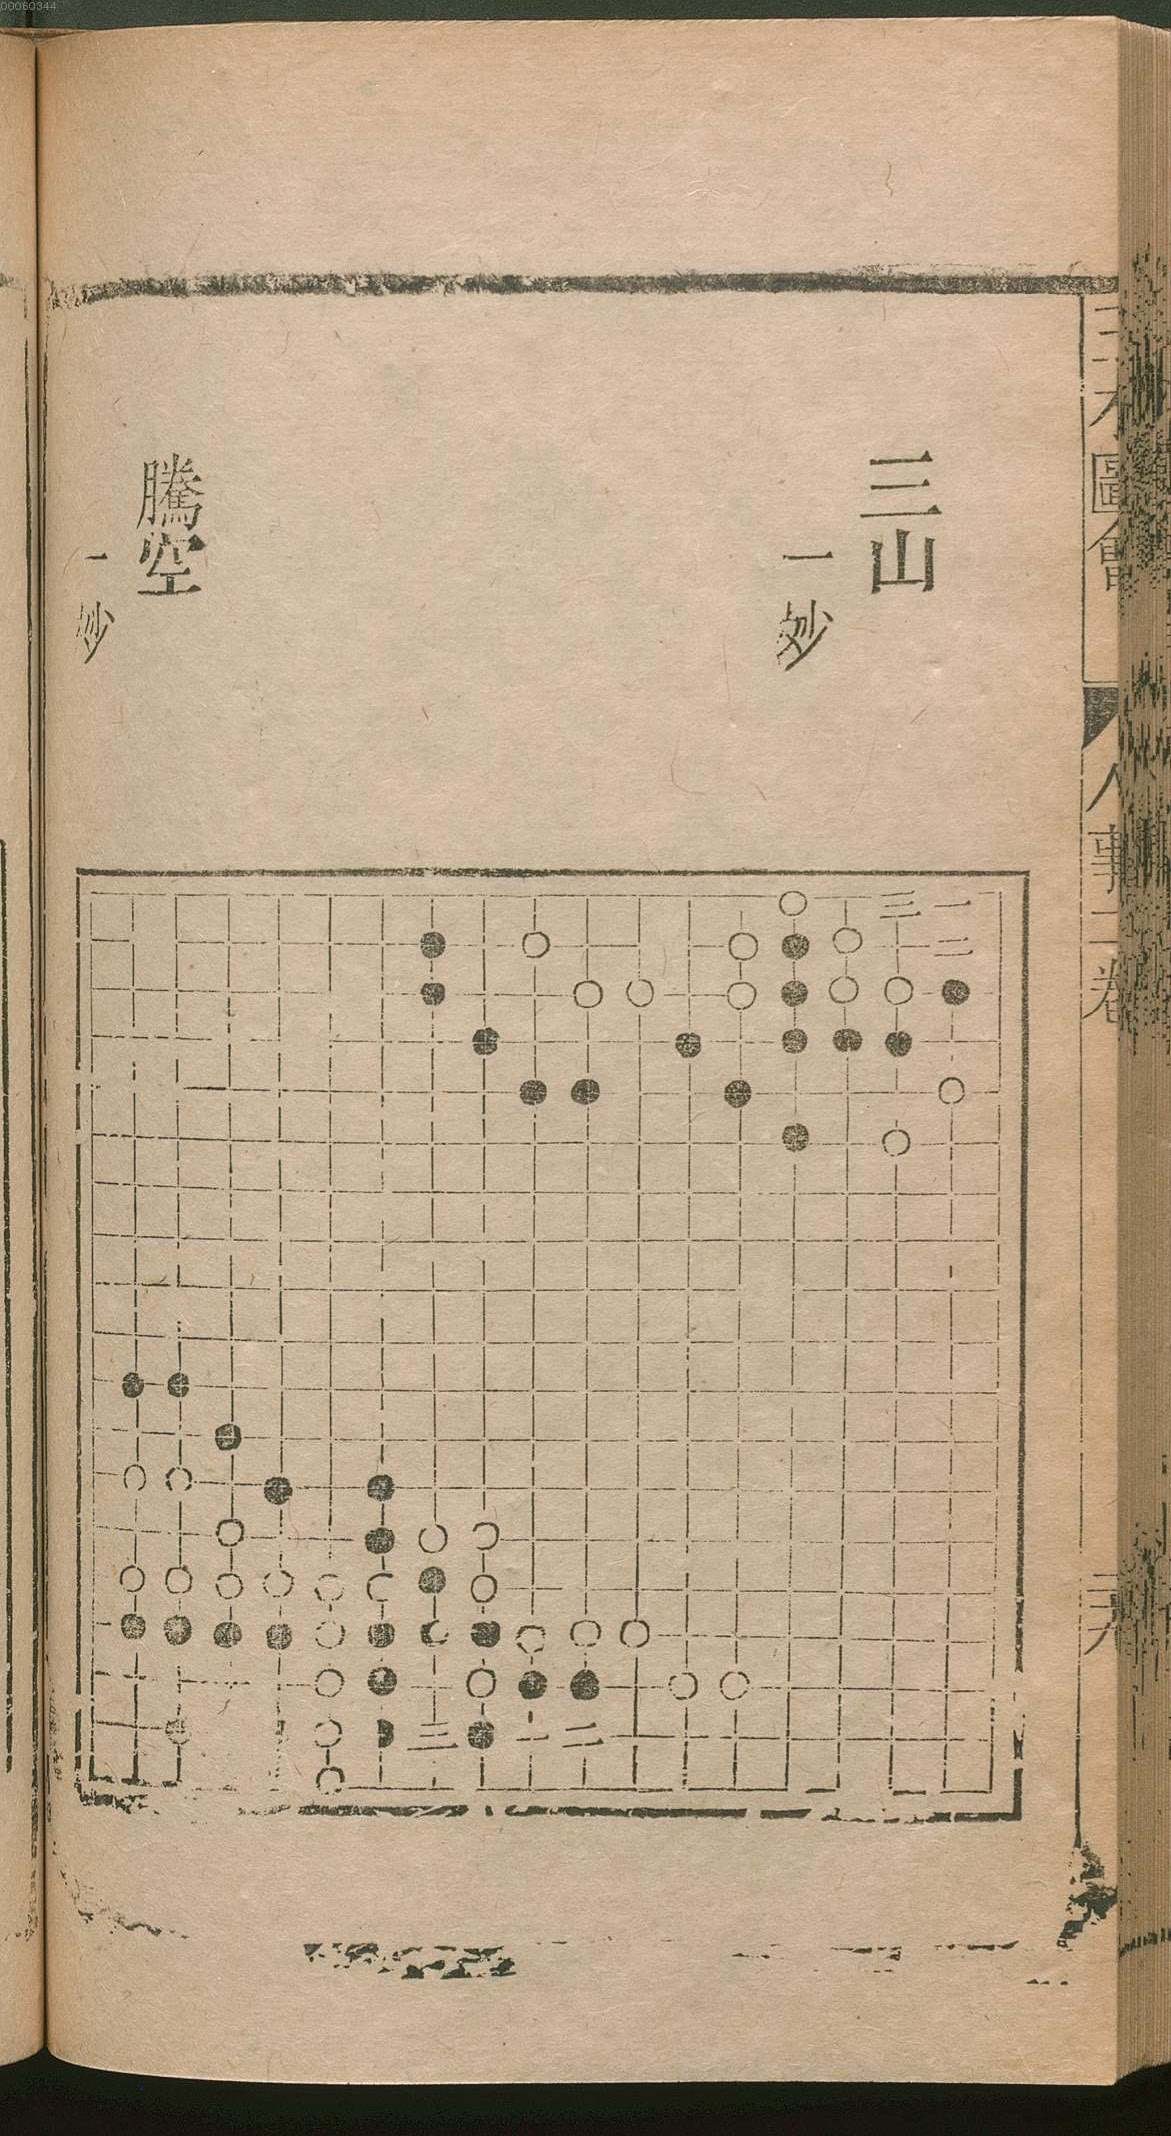 00060344
三才圖會
人事二卷
三山
一妙
騰空
一妙
三 一
二
三 一 二